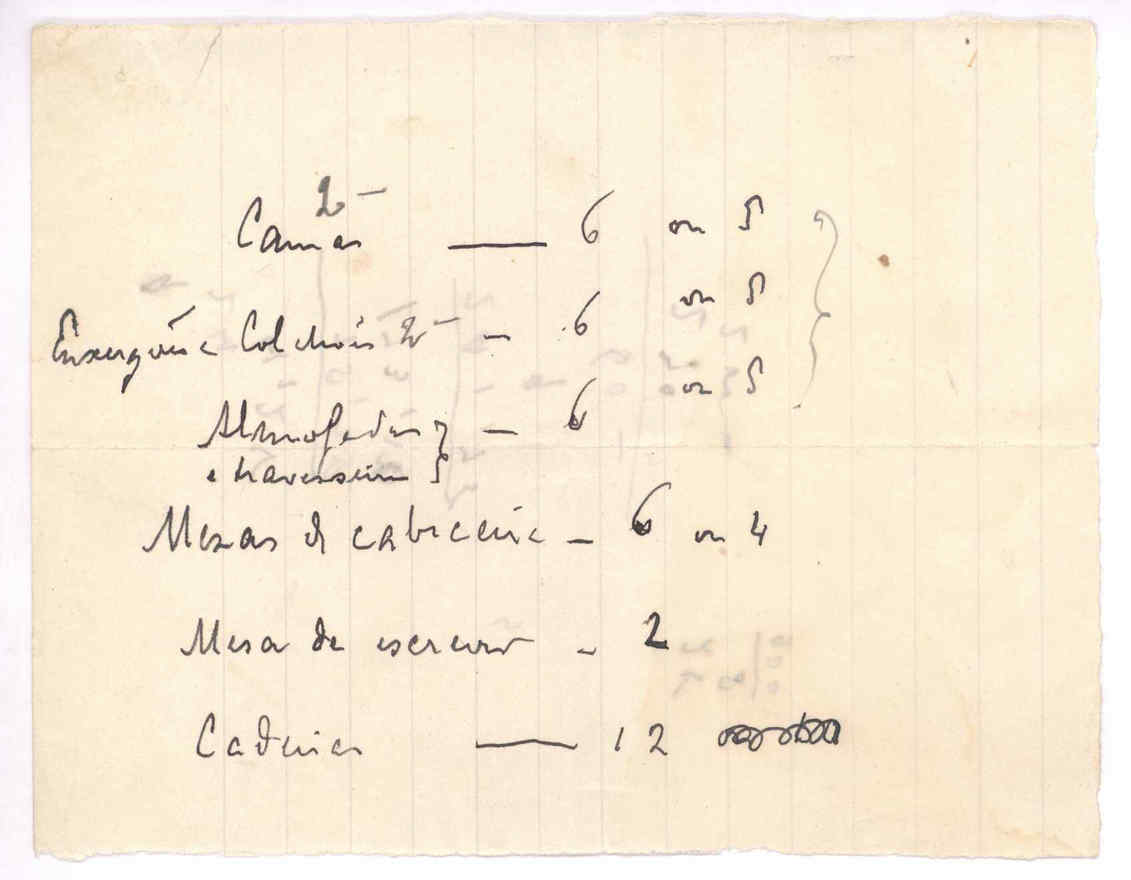 2 —
Camas — 6 ou 5
Enxergões e Colchões 2 — — 6 ou 5
Almofadas } — 6 ou 5
e travesseiro }
Mezas de cabeceira — 6 ou 4
Mesa de escrever — 2
Cadeiras — 12